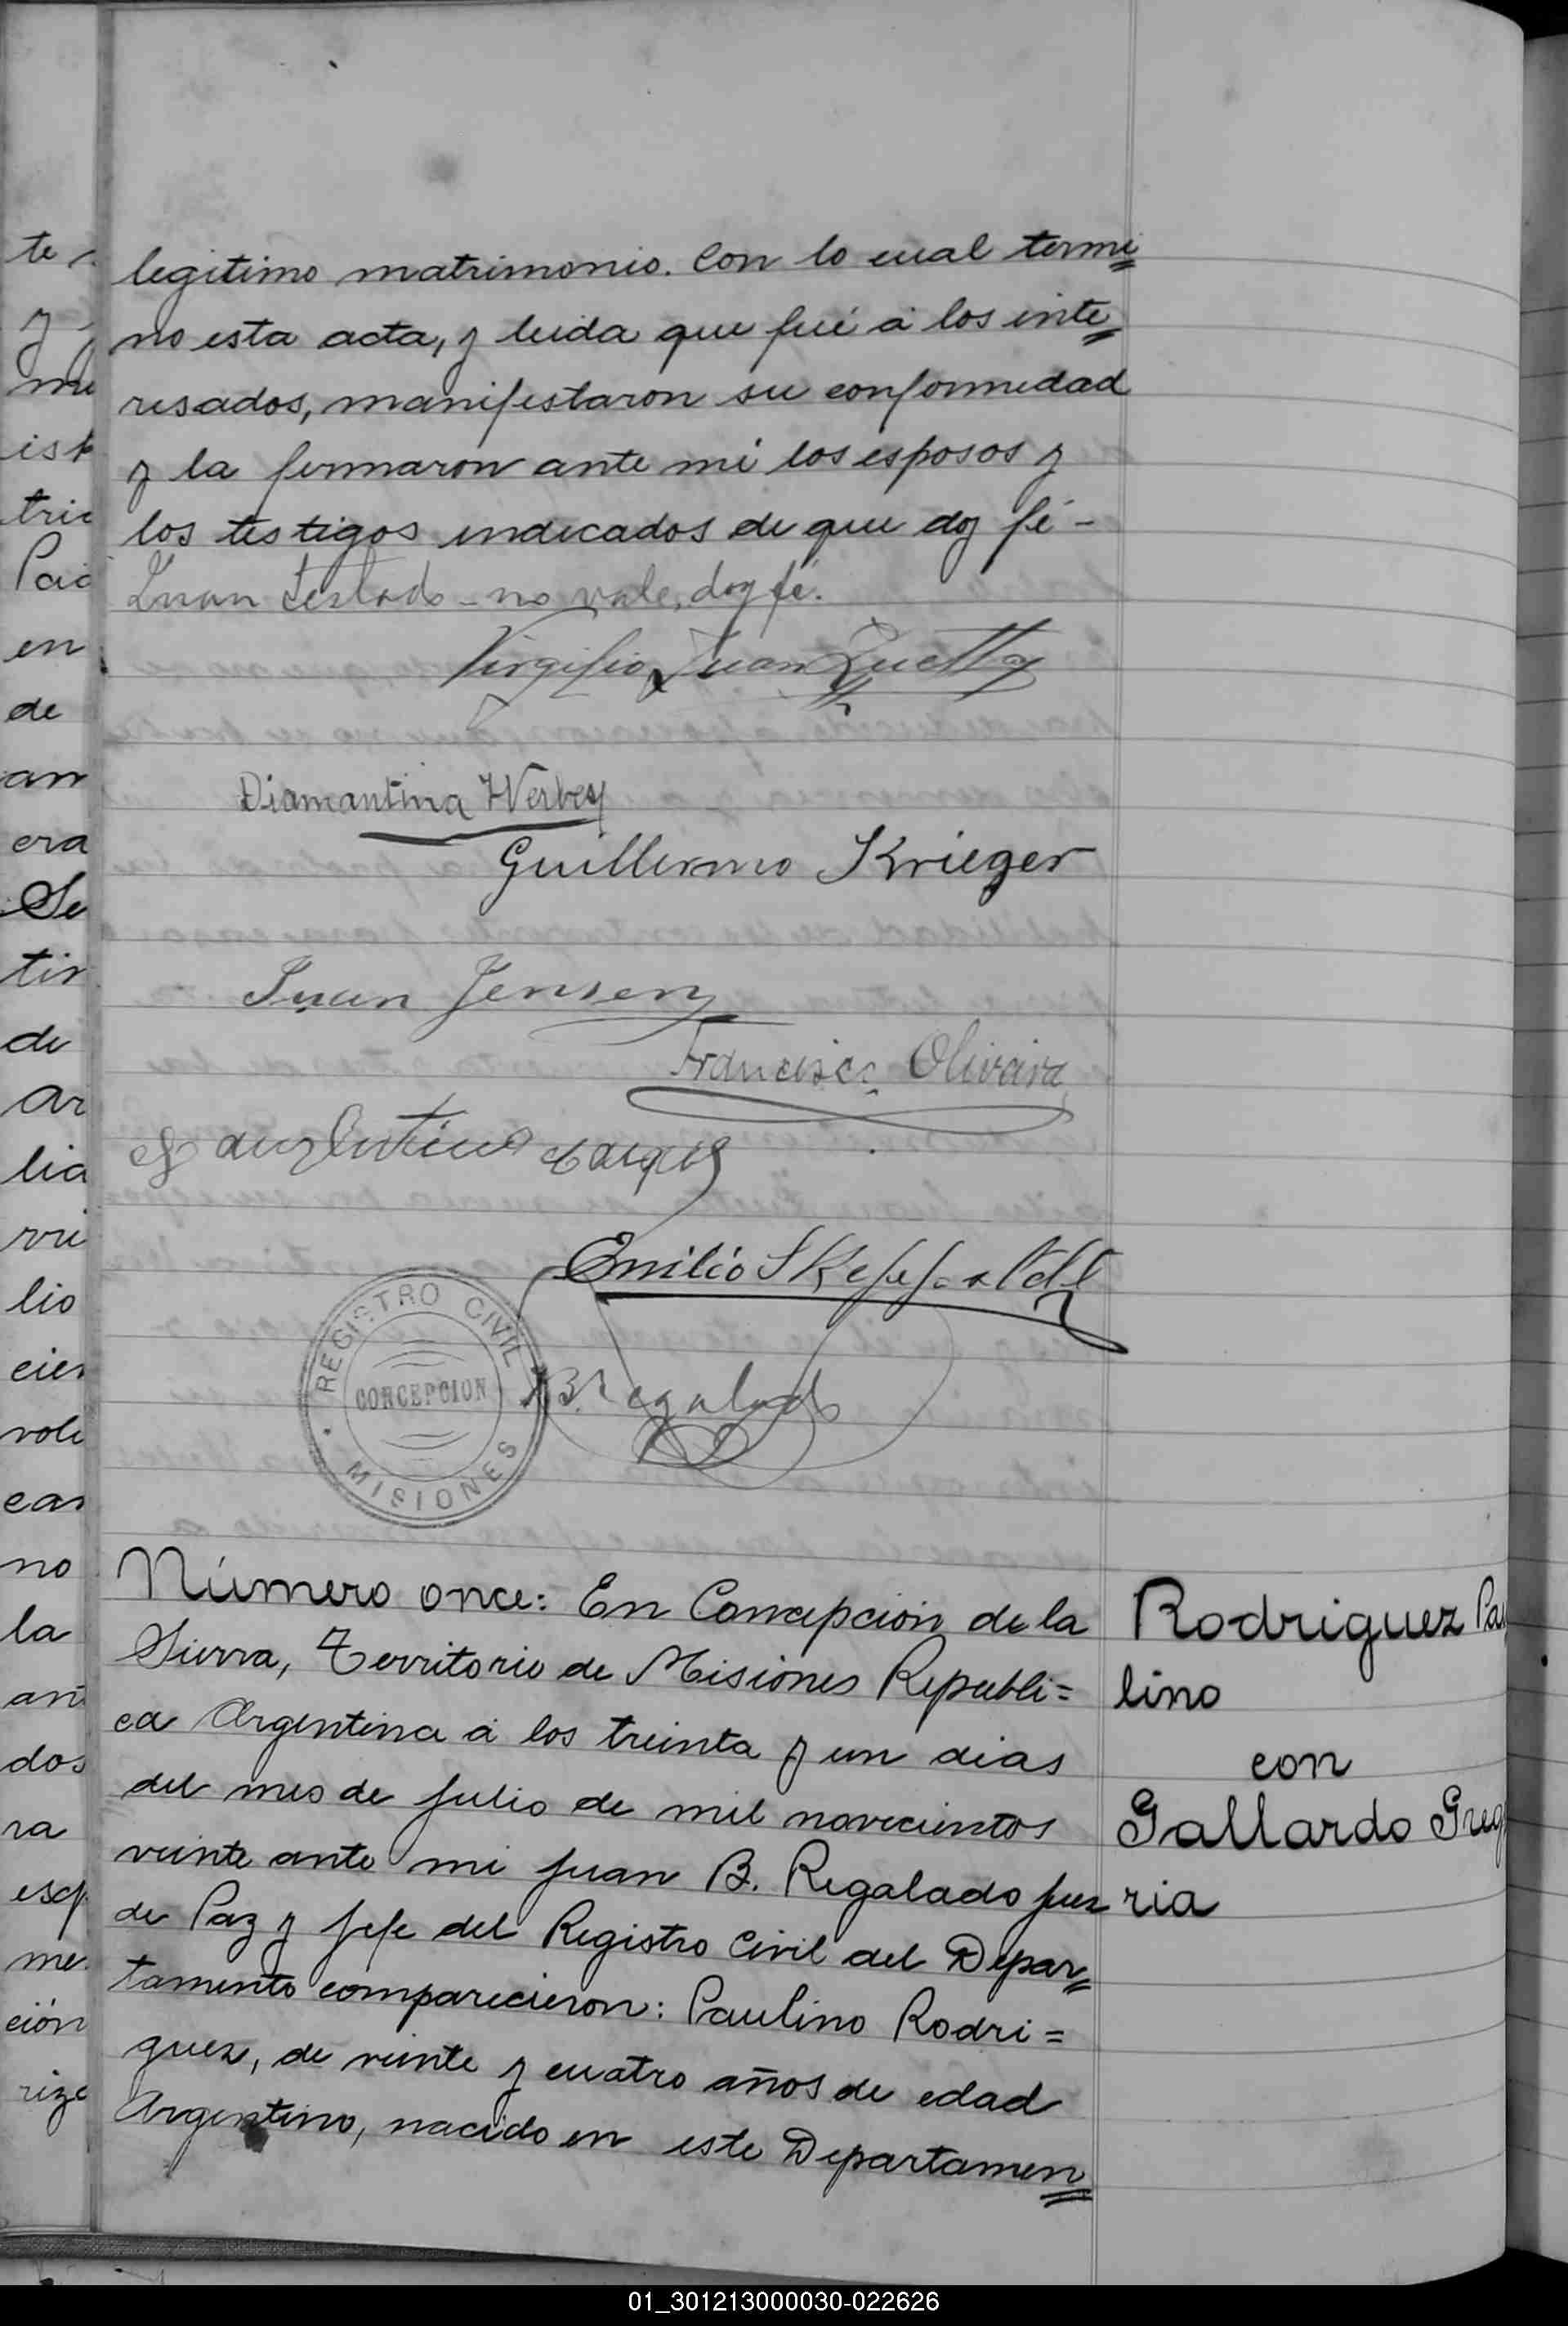 legitimo matrimonio. Con lo cual termi=
no esta acta, y leida que fué á los inte=
resados, manifestaron su conformidad
y la firmaron ante mi los esposos y
los testigos indicados de que doy fé-
Juan testado - no vale, doy fé.
Virgilio Juan Zuetta
Diamantina
Guillermo Krieger
Juan Jensen
Francisco Oliveira
Emilio
B. Regalado
REGISTRO CIVIL
CONCEPCION
MISIONES
Número once: En Concepción de la
Sierra, Territorio de Misiones Republi=
ca Argentina á los treinta y un dias
del mes de Julio de mil novecientos
veinte ante mi Juan B. Regalado Juez
de Paz y Jefe del Registro Civil del Depar=
tamento comparecieron: Paulino Rodri=
guez, de veinte y cuatro años de edad
Argentino, nacido en este Departamen=
Rodriguez Pau
lino
con
Gallardo Greg
ria
te
y
en
de
era
Se
de
lio
no
la
dos
ra
ción
01_301213000030-022626